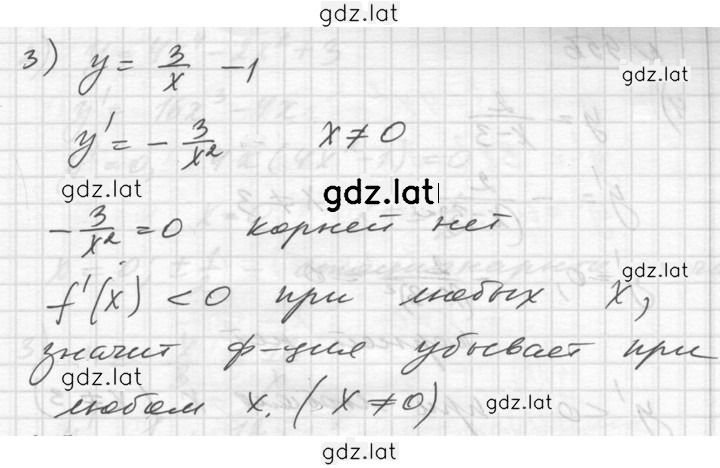 gdz.lat
3) y = 3/x - 1
gdz.lat
y' = - 3/x² x ≠ 0
gdz.lat
gdz.lat
- 3/x² = 0 корней нет
gdz.lat
f'(x) < 0 при любых x,
значит ф-ция убывает при
gdz.lat
любом x. (x ≠ 0)
gdz.lat
gdz.lat